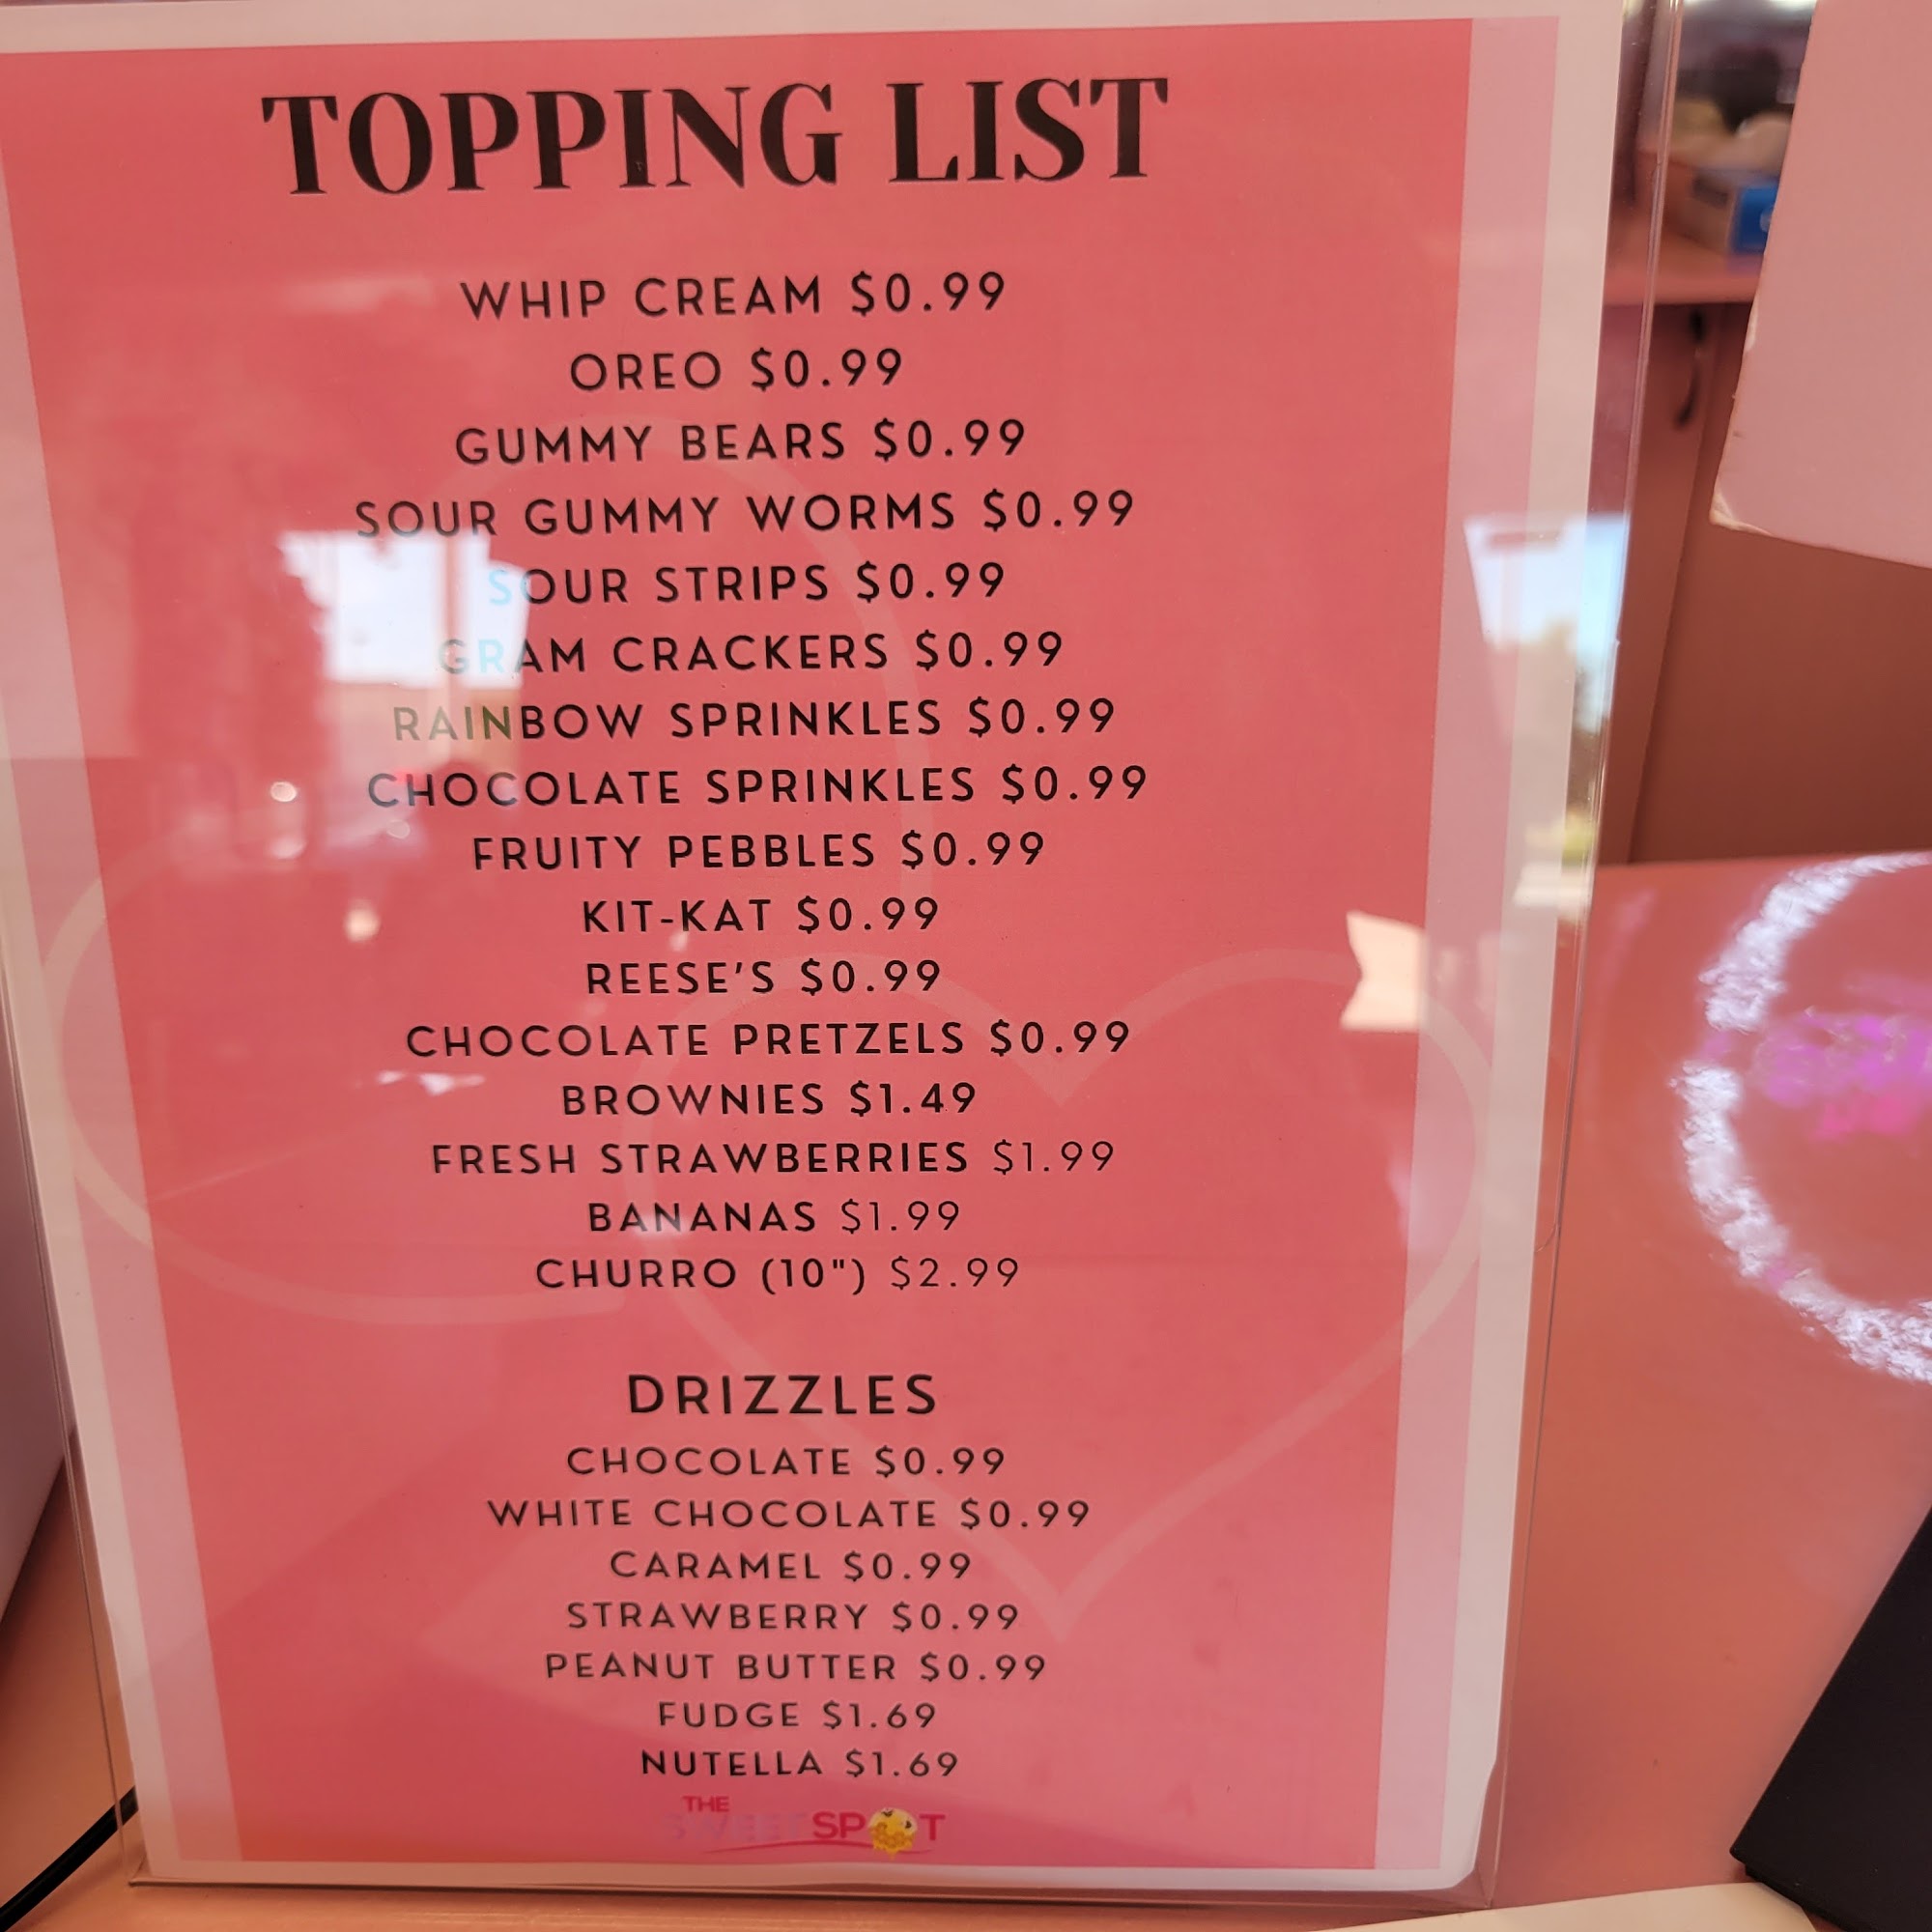 TOPPING LIST
WHIP CREAM $0.99
OREO $0.99
GUMMY BEARS $0.99
SOUR GUMMY WORMS $0.99
SOUR STRIPS $0.99
GRAM CRACKERS $0.99
RAINBOW SPRINKLES $0.99
CHOCOLATE SPRINKLES $0.99
FRUITY PEBBLES $0.99
KIT-KAT $0.99
REESE'S $0.99
CHOCOLATE PRETZELS $0.99
BROWNIES $1.49
FRESH STRAWBERRIES $1.99
BANANAS $1.99
CHURRO (10") $2.99
DRIZZLES
CHOCOLATE $0.99
WHITE CHOCOLATE $0.99
CARAMEL $0.99
STRAWBERRY $0.99
PEANUT BUTTER $0.99
FUDGE $1.69
NUTELLA $1.69
THE
SWEET SPOT